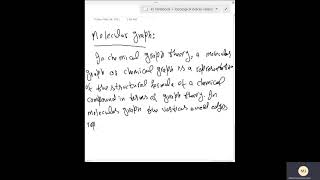 Molecular graph:
In chemical graph theory, a molecular
graph or chemical graph is a representation
of the structural formula of a chemical
compound in terms of graph theory. In
molecular graph the vertices and edges
rep